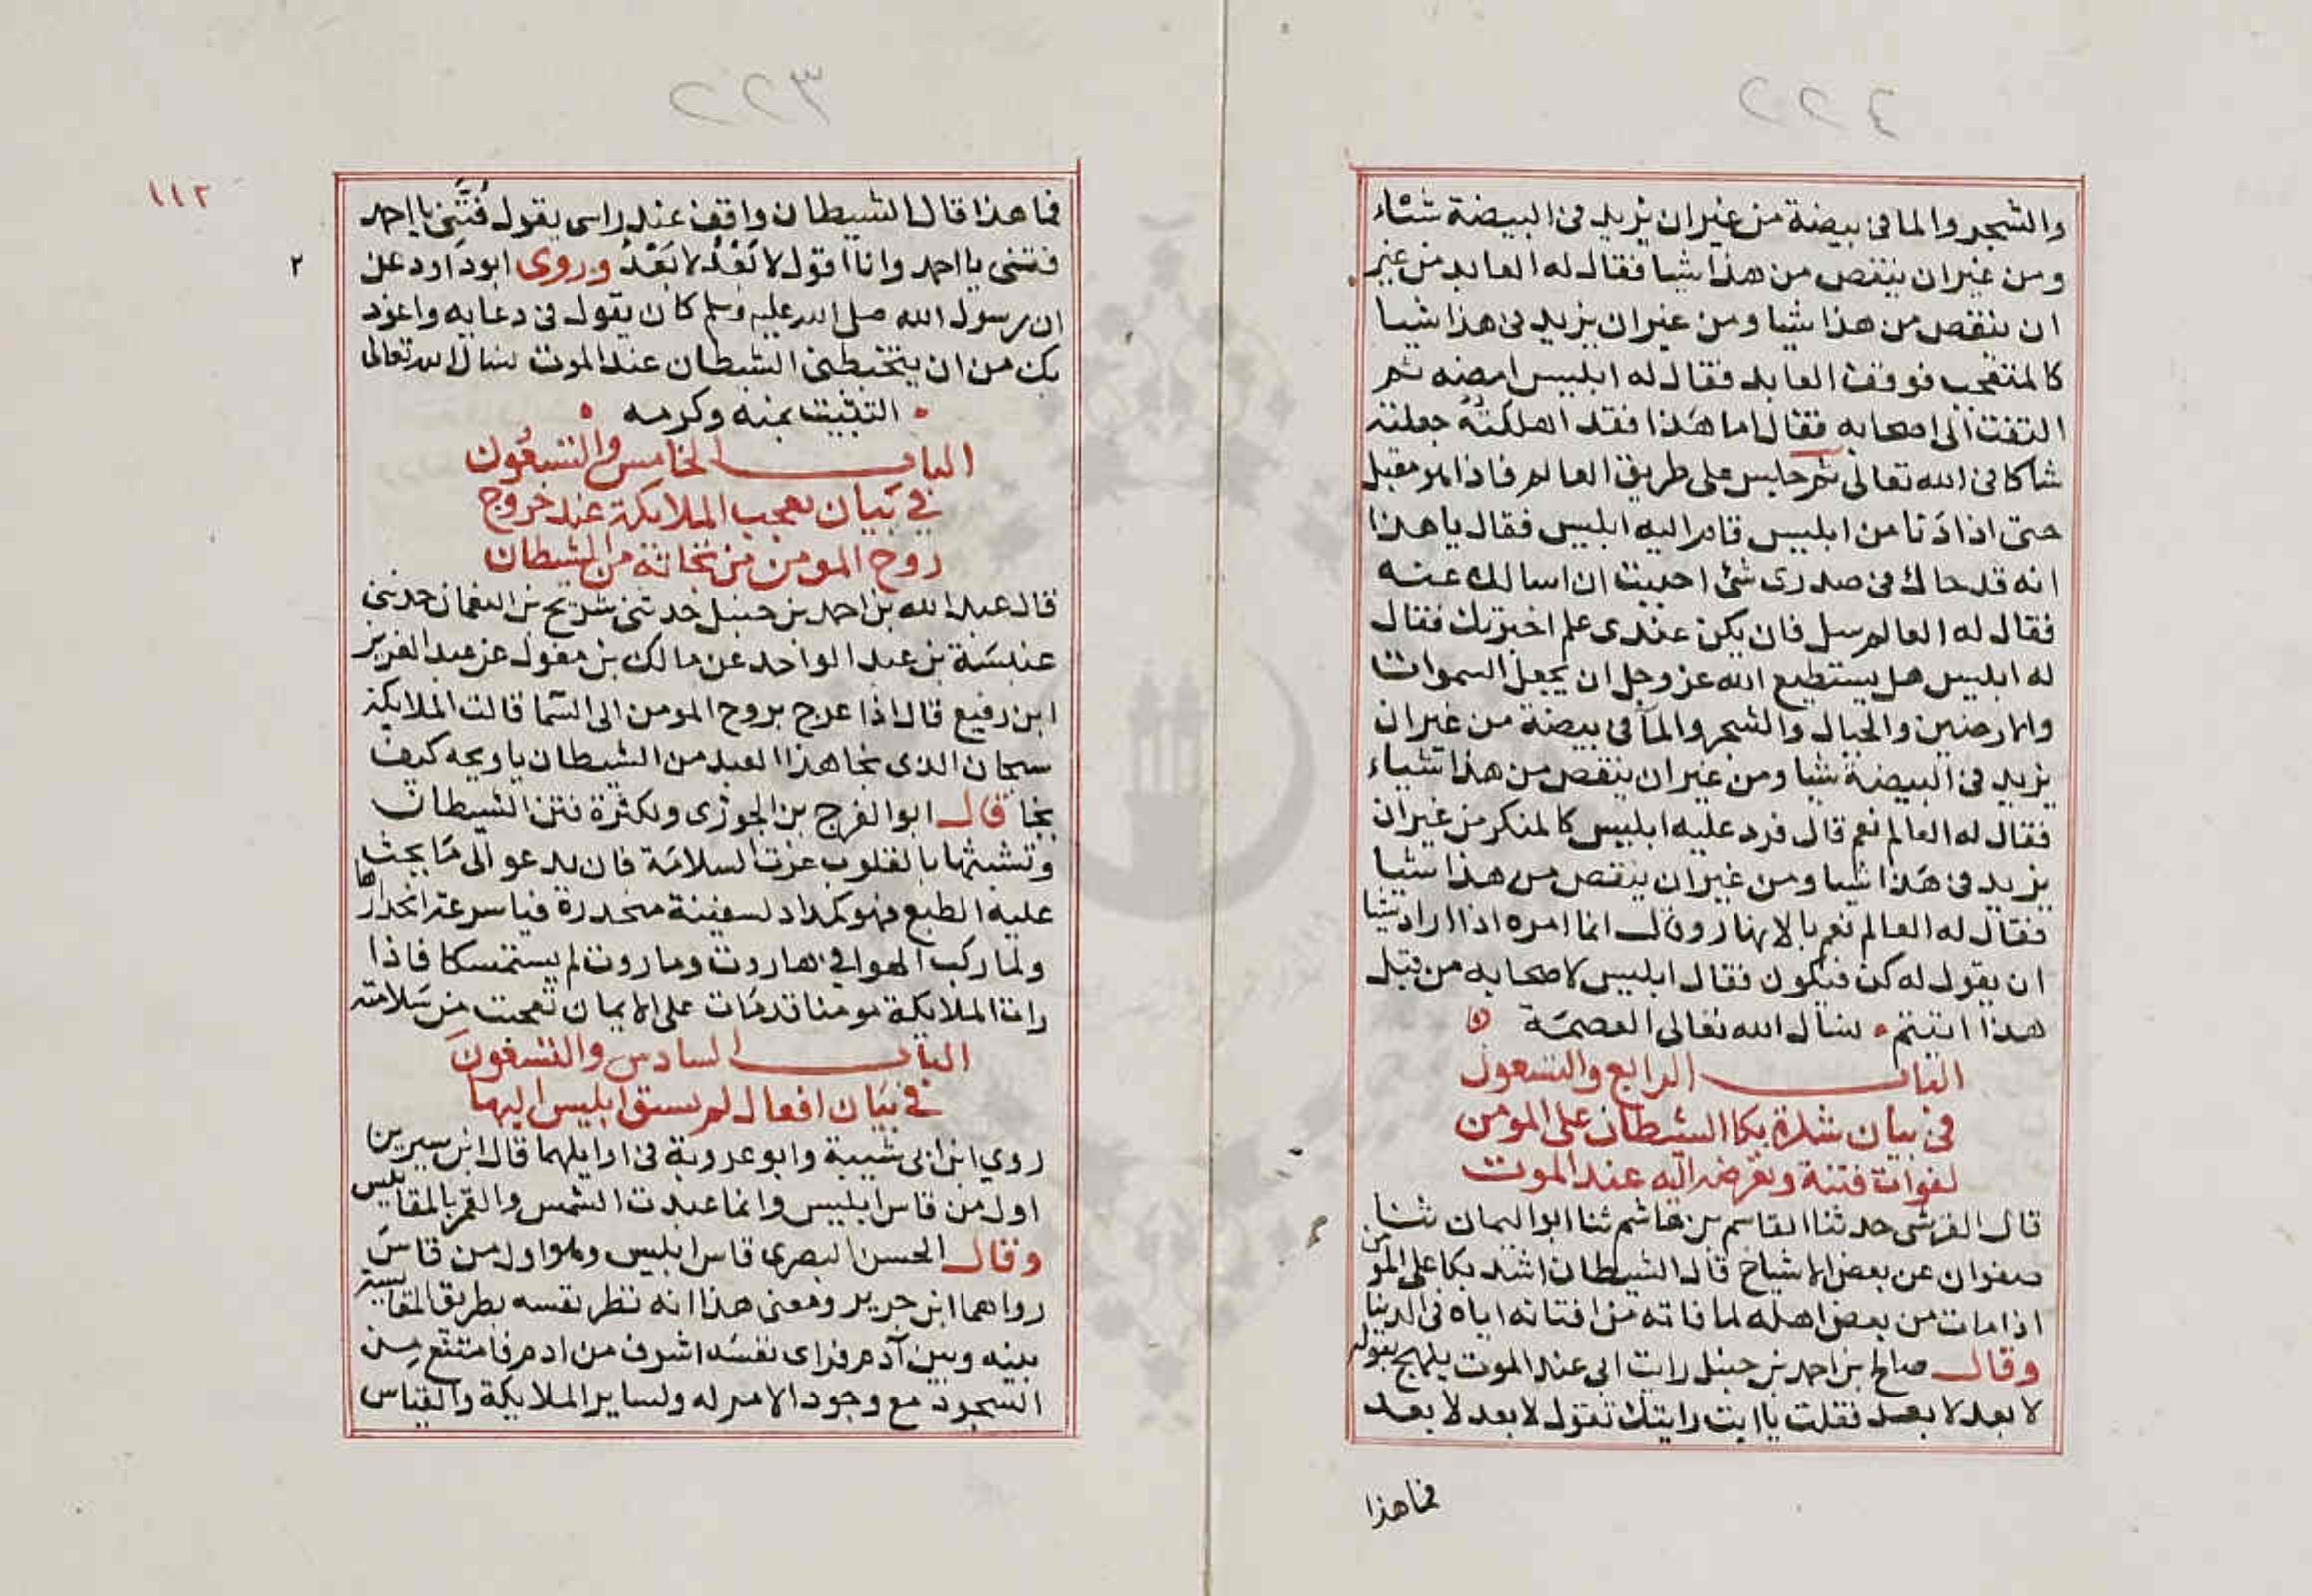 ٤٢٢
والشجر والما في بيضة من غير ان يزيد في البيضة شياء
ومن غير ان ينقص من هذا شيا فقال له العابد من غير
ان ينقص من هذا شيا ومن غير ان يزيد في هذا شيا
كالمتعجب فوقف العابد فقال له ابليس امضه ثم
التفت الى اصحابه فقال اما هذا فقد اهلكته جعلته
شاكا في الله تعالى ثم جلس على طريق العالم فاذا هو مقبل
حتى اذا دنا من ابليس قام اليه ابليس فقال يا هذا
انه قد حاك في صدرى شئ احببت ان اسالك عنه
فقال له العالم سل فان يكن عندى علم اخبرتك فقال
له ابليس هل يستطيع الله عز وجل ان يجعل السموات
والارضين والجبال والشجر والما في بيضة من غير ان
يزيد في البيضة شيا ومن غير ان ينقص من هذا شياء
فقال له العالم نعم قال فرد عليه ابليس كالمنكر من غير ان
يزيد في هذا شيا ومن غير ان ينقص من هذا شيا
فقال له العالم نعم بالانهار وقال انما امره اذا اراد شيا
ان يقول له كن فيكون فقال ابليس لاصحابه من قبل
هذا اتيتم نسال الله تعالى العصمة
الباب الرابع والتسعون
في بيان شدة بكا الشيطان على المومن
لفوات فتنة وتعرضه اليه عند الموت
قال القرشى حدثنا القاسم بن هاشم ثنا ابو اليمان ثنا
صفوان عن بعض الاشياخ قال الشيطان اشد بكا على المومن
اذا مات من بعض اهله لما فاته من افتتانه اياه في الدنيا
وقال صالح بن احمد بن حنبل رايت ابى عند الموت يلهج بقوله
لا بعد لا بعد فقلت يا ابت رايتك تقول لا بعد لا بعد
فما هذا
٣٢٢
١١٢
فما هذا قال الشيطان واقف عند راسى يقول فُتَّنى يا احمد
فتنى يا احمد وانا اقول لا بَعْدُ لا بَعْدُ وروى ابو داود عن
٢
ان رسول الله صلى الله عليه وسلم كان يقول في دعايه واعوذ
بك من ان يتخبطنى الشيطان عند الموت نسال الله تعالى
التثبيت بمنه وكرمه
الباب الخامس والتسعون
في بيان تعجب الملايكة عند خروج
روح المومن من نجاته من الشيطان
قال عبد الله بن احمد بن حنبل حدثنى شريح بن النعمان حدثنى
عنبسة بن عبد الواحد عن مالك بن مغول عن عبد العزيز
ابن رفيع قال اذا عرج بروح المومن الى السما قالت الملايكة
سبحان الذى نجا هذا العبد من الشيطان يا ويحه كيف
نجا قال ابو الفرج بن الجوزى ولكثرة فتن الشيطان
وتشبثها بالقلوب عزت السلامة فان يدعو الى ما يحث
عليه الطبع فهو كمداد لسفينة منحدرة فيا سرعة انحدارها
ولما ركب الهوا في هاروت وماروت لم يستمسكا فاذا
رات الملايكة مومنا قد مات على الايمان تعجبت من سلامته
الباب السادس والتسعون
في بيان افعال لم يسبق ابليس اليها
روي ابن ابى شيبة وابو عروبة في اوايلهما قال ابن سيرين
اول من قاس ابليس وانما عبدت الشمس والقمر بالمقاييس
وقال الحسن البصرى قاس ابليس وهو اول من قاس
رواهما ابن جرير ومعنى هذا انه نظر نفسه بطريق المقايسة
بينه وبين آدم فراى نفسه اشرف من ادم فامتنع من
السجود مع وجود الامر له ولساير الملايكة والقياس